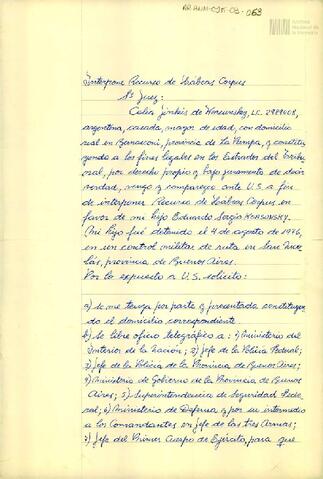 AR-ANM-CJE-03-063
Archivo
Nacional de
la Memoria
Interpone Recurso de Habeas Corpus
Sr Juez:
Celia Jinkis de Korsunsky, LC. 2989008,
argentina, casada, mayor de edad, con domicilio
real en Bernasconi, provincia de La Pampa, y constitu
yendo a los fines legales en los Estrados del Tribu
nal, por derecho propio y bajo juramento de decir
verdad, vengo y comparezco ante U.S a fin
de interponer Recurso de Habeas Corpus en
favor de mi hijo Eduardo Sergio KORSUNSKY.
Mi hijo fué detenido el 4 de agosto de 1976,
en un control militar de ruta en San Nico
lás, provincia de Buenos Aires.
Por lo expuesto a U.S. solicito:
a) se me tenga por parte y presentada constituyen
do el domicilio correspondiente
b) se libre oficio telegráfico a: 1) Ministerio del
Interior de la Nación; 2) Jefe de la Policía Federal;
3) Jefe de la Policía de la Provincia de Buenos Aires;
4) Ministerio de Gobierno de la Provincia de Buenos
Aires; 5) Superintendencia de Seguridad Fede
ral; 6) Ministerio de Defensa y por su intermedio
a los Comandantes en Jefe de las tres Armas;
7) Jefe del Primer Cuerpo de Ejército, para que